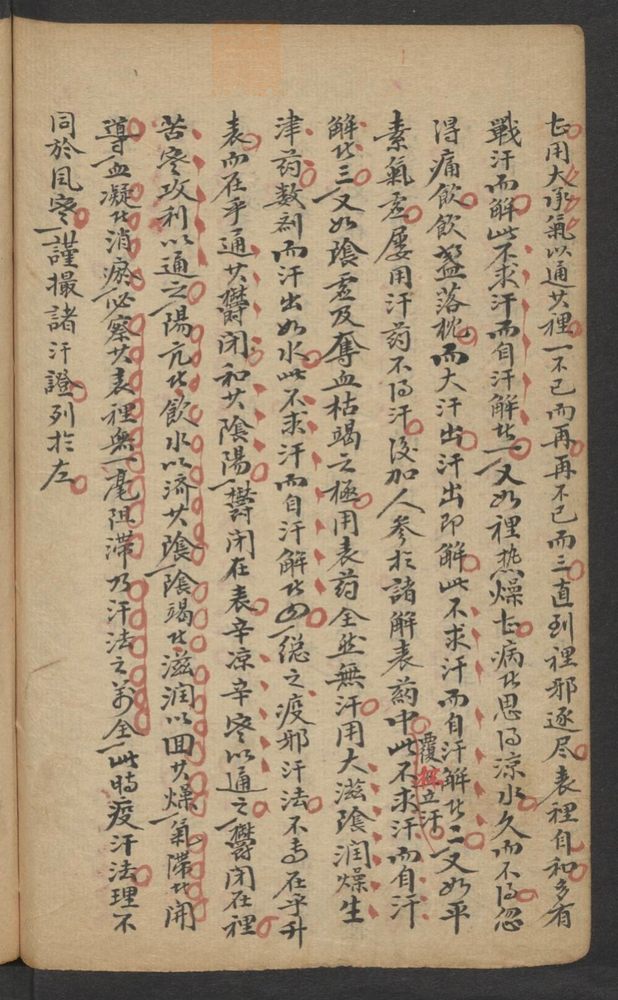 甚用大承氣以通其裡一不已而再再不已而三直到裡邪逐尽表裡自和多有
戰汗而解此不求汗而自汗解者一又如裡热燥甚病者思得涼水久而不得忽
得痛飲飲盏落枕而大汗出汗出即解此不求汗而自汗解者二又如平
素氣虛屡用汗药不得汗後加人参於諸解表药中覆杯立汗此不求汗而自汗
解者三又如陰虛及奪血枯竭之極用表药全然無汗用大滋陰润燥生
津药数剂而汗出如水此不求汗而自汗解者四總之疫邪汗法不專在乎升
表而在乎通其鬱闭和其陰陽鬱闭在表辛凉辛寒以通之鬱闭在裡
苦寒攻利以通之陽亢者飲水以济其陰陰竭者滋润以回其燥氣滞者開
導血凝者消瘀必察其表裡無一毫阻滞乃汗法之萬全此時疫汗法理不
同於風寒謹撮諸汗證列於左